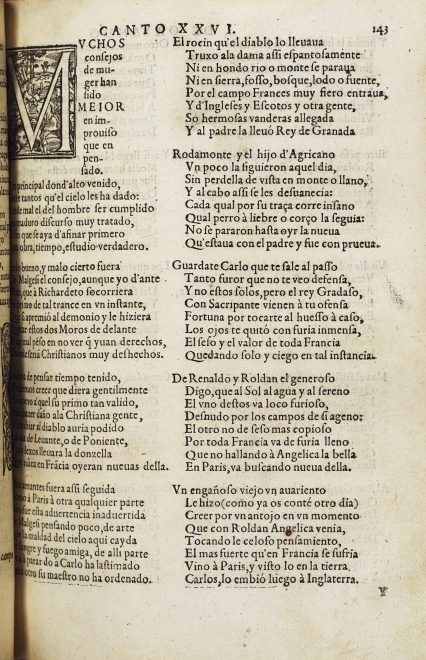 CANTO XXVI.
143
MVCHOS
consejos
de mu-
ger han
sido
MEIOR
en im-
prouiso
que en
pen-
sado.
principal dond'alto venido,
tantos qu'el cielo les ha dado:
mal el del hombre ser cumplido
maduro discurso muy tratado,
que se aya d'afinar primero
obra, tiempo, estudio verdadero.
bueno, y malo cierto fuera
Malgesi el consejo, aunque yo d'ante
que à Richardeto socorriera
primo de tal trance en vn instante,
apremiò al demonio y le hiziera
estos dos Moros de delante
pèso en no ver q̃ yuan derechos,
seriã Christianos muy deshechos.
de pensar tiempo tenido,
creer que diera gentilmente
su primo tan valido,
hazer daño ala Christiana gente,
al diablo auria podido
de Leuante, o de Poniente,
lexos lleuara la donzella
en Frãcia oyeran nueuas della.
amantes fuera assi seguida
à Paris à otra qualquier parte
esta aduertencia inaduertida
Malgesi pensando poco, de arte
maldad del cielo aqui cayda
sangre y fuego amiga, de alli parte
parar do a Carlo ha lastimado
otro su maestro no ha ordenado.
El rocin qu'el diablo lo lleuaua
Truxo ala dama assi espantosamente
Ni en hondo rio o monte se paraua
Ni en sierra, fosso, bosque, lodo o fuente,
Por el campo Frances muy fiero entraua,
Y d'Ingleses y Escotos y otra gente,
So hermosas vanderas allegada
Y al padre la lleuó Rey de Granada
Rodamonte y el hijo d'Agricano
Vn poco la siguieron aquel dia,
Sin perdella de vista en monte o llano,
Y al cabo assi se les desuanecia:
Cada qual por su traça corre insano
Qual perro à liebre o corço la seguia:
No se pararon hasta oyr la nueua
Qu'estaua con el padre y fue con prueua.
Guardate Carlo que te sale al passo
Tanto furor que no te veo defensa,
Y no estos solos, pero el rey Gradaso,
Con Sacripante vienen à tu ofensa
Fortuna por tocarte al huesso à caso,
Los ojos te quitó con furia inmensa,
El seso y el valor de toda Francia
Quedando solo y ciego en tal instancia.
De Renaldo y Roldan el generoso
Digo, que al Sol al agua y al sereno
El vno destos va loco furioso,
Desnudo por los campos de si ageno:
El otro no de seso mas copioso
Por toda Francia va de furia lleno
Que no hallando à Angelica la bella
En Paris, va buscando nueua della.
Vn engañoso viejo vn auariento
Le hizo (como ya os conté otro dia)
Creer por vn antojo en vn momento
Que con Roldan Angelica venia,
Tocando le celoso pensamiento,
El mas fuerte qu'en Francia se sufria
Vino à Paris, y visto lo en la tierra
Carlos, lo embió luego à Inglaterra.